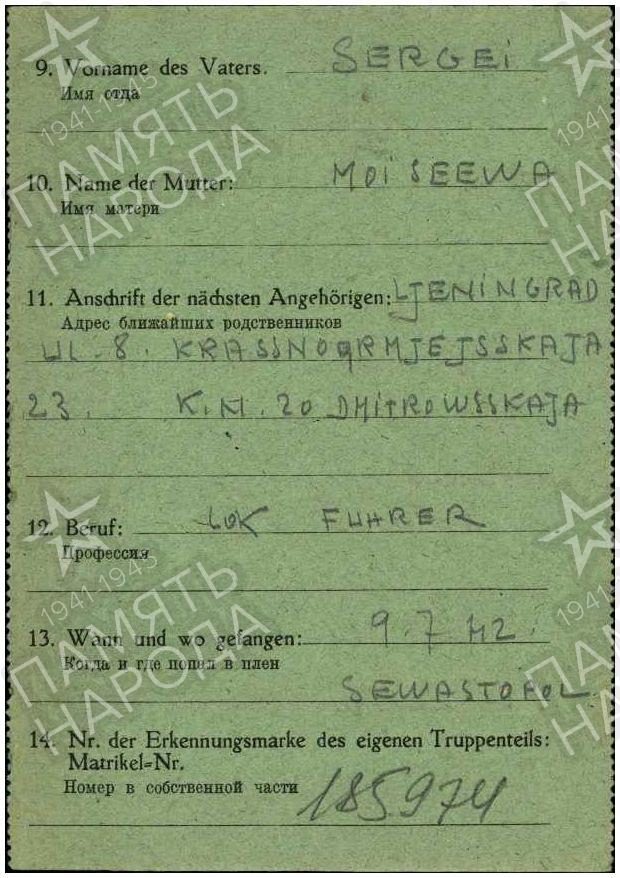 9. Vorname des Vaters. SERGEI
Имя отца
10. Name der Mutter: MOISEEWA
Имя матери
11. Anschrift der nächsten Angehörigen: LJENINGRAD
Адрес ближайших родственников
Ul-8. KRASSNOARMJEJSSKAJA
23. K.M. 20 DMITROWSSKAJA
12. Beruf: LOK FUHRER
Профессия
13. Wann und wo gefangen: 9.7.42.
Когда и где попал в плен
SEWASTOPOL
14. Nr. der Erkennungsmarke des eigenen Truppenteils:
Matrikel=Nr.
Номер в собственной части 185974
1941-1945
ПАМЯТЬ
НАРОДА
1941-1945
ПАМЯТЬ
НАРОДА